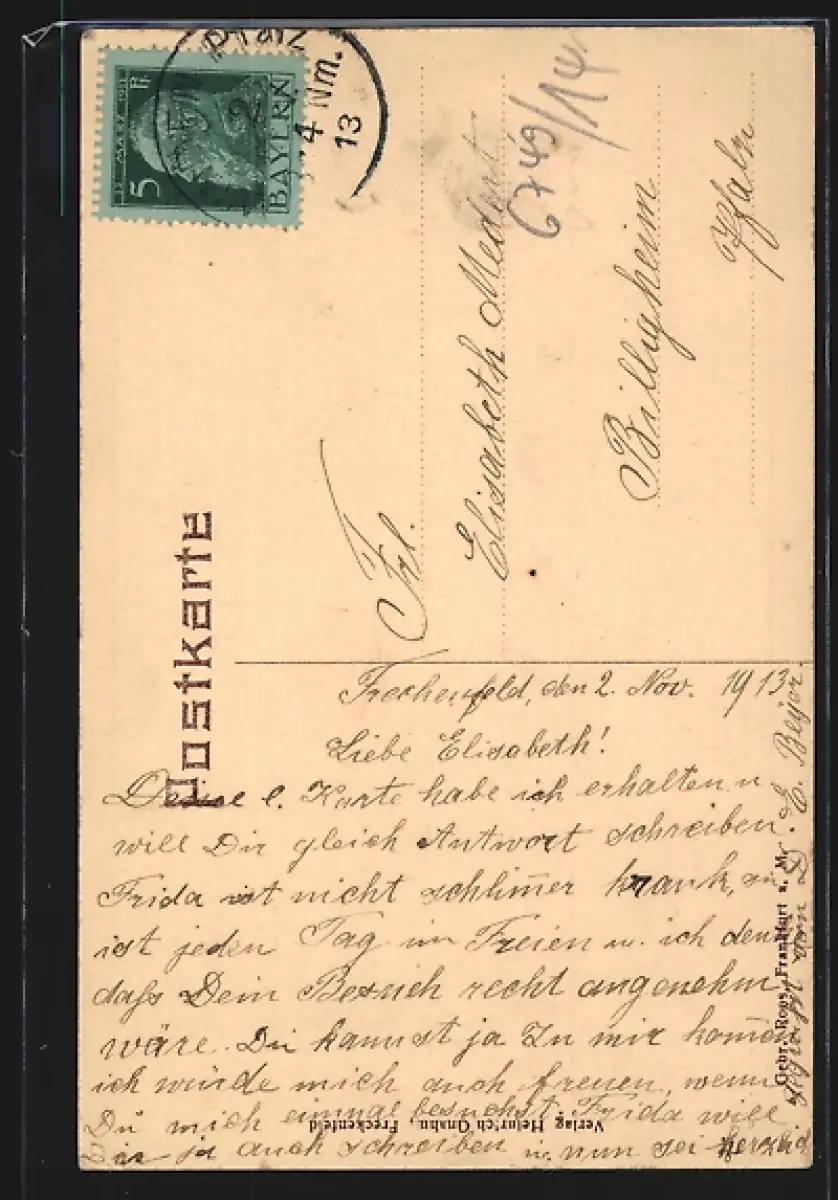 Pfalz
4 Nm.
13
5
BAYERN
6749/14
Postkarte
Frl.
Elisabeth Medert
Billigheim
Pfalz
Freckenfeld, den 2. Nov. 1913.
Liebe Elisabeth!
Deine l. Karte habe ich erhalten u.
will Dir gleich Antwort schreiben.
Frida ist nicht schlimmer krank, sie
ist jeden Tag im Freien u. ich denke
daß Dein Besuch recht angenehm
wäre. Du kannst ja zu mir kommen
ich würde mich auch freuen, wenn
Du mich einmal besuchst. Frida will
Dir ja auch schreiben u. nun sei herzlich
gegrüßt von Deiner E. Beyer.
Gebr. Roos, Frankfurt a. M.
Verlag Heinrich Gnahn, Freckenfeld